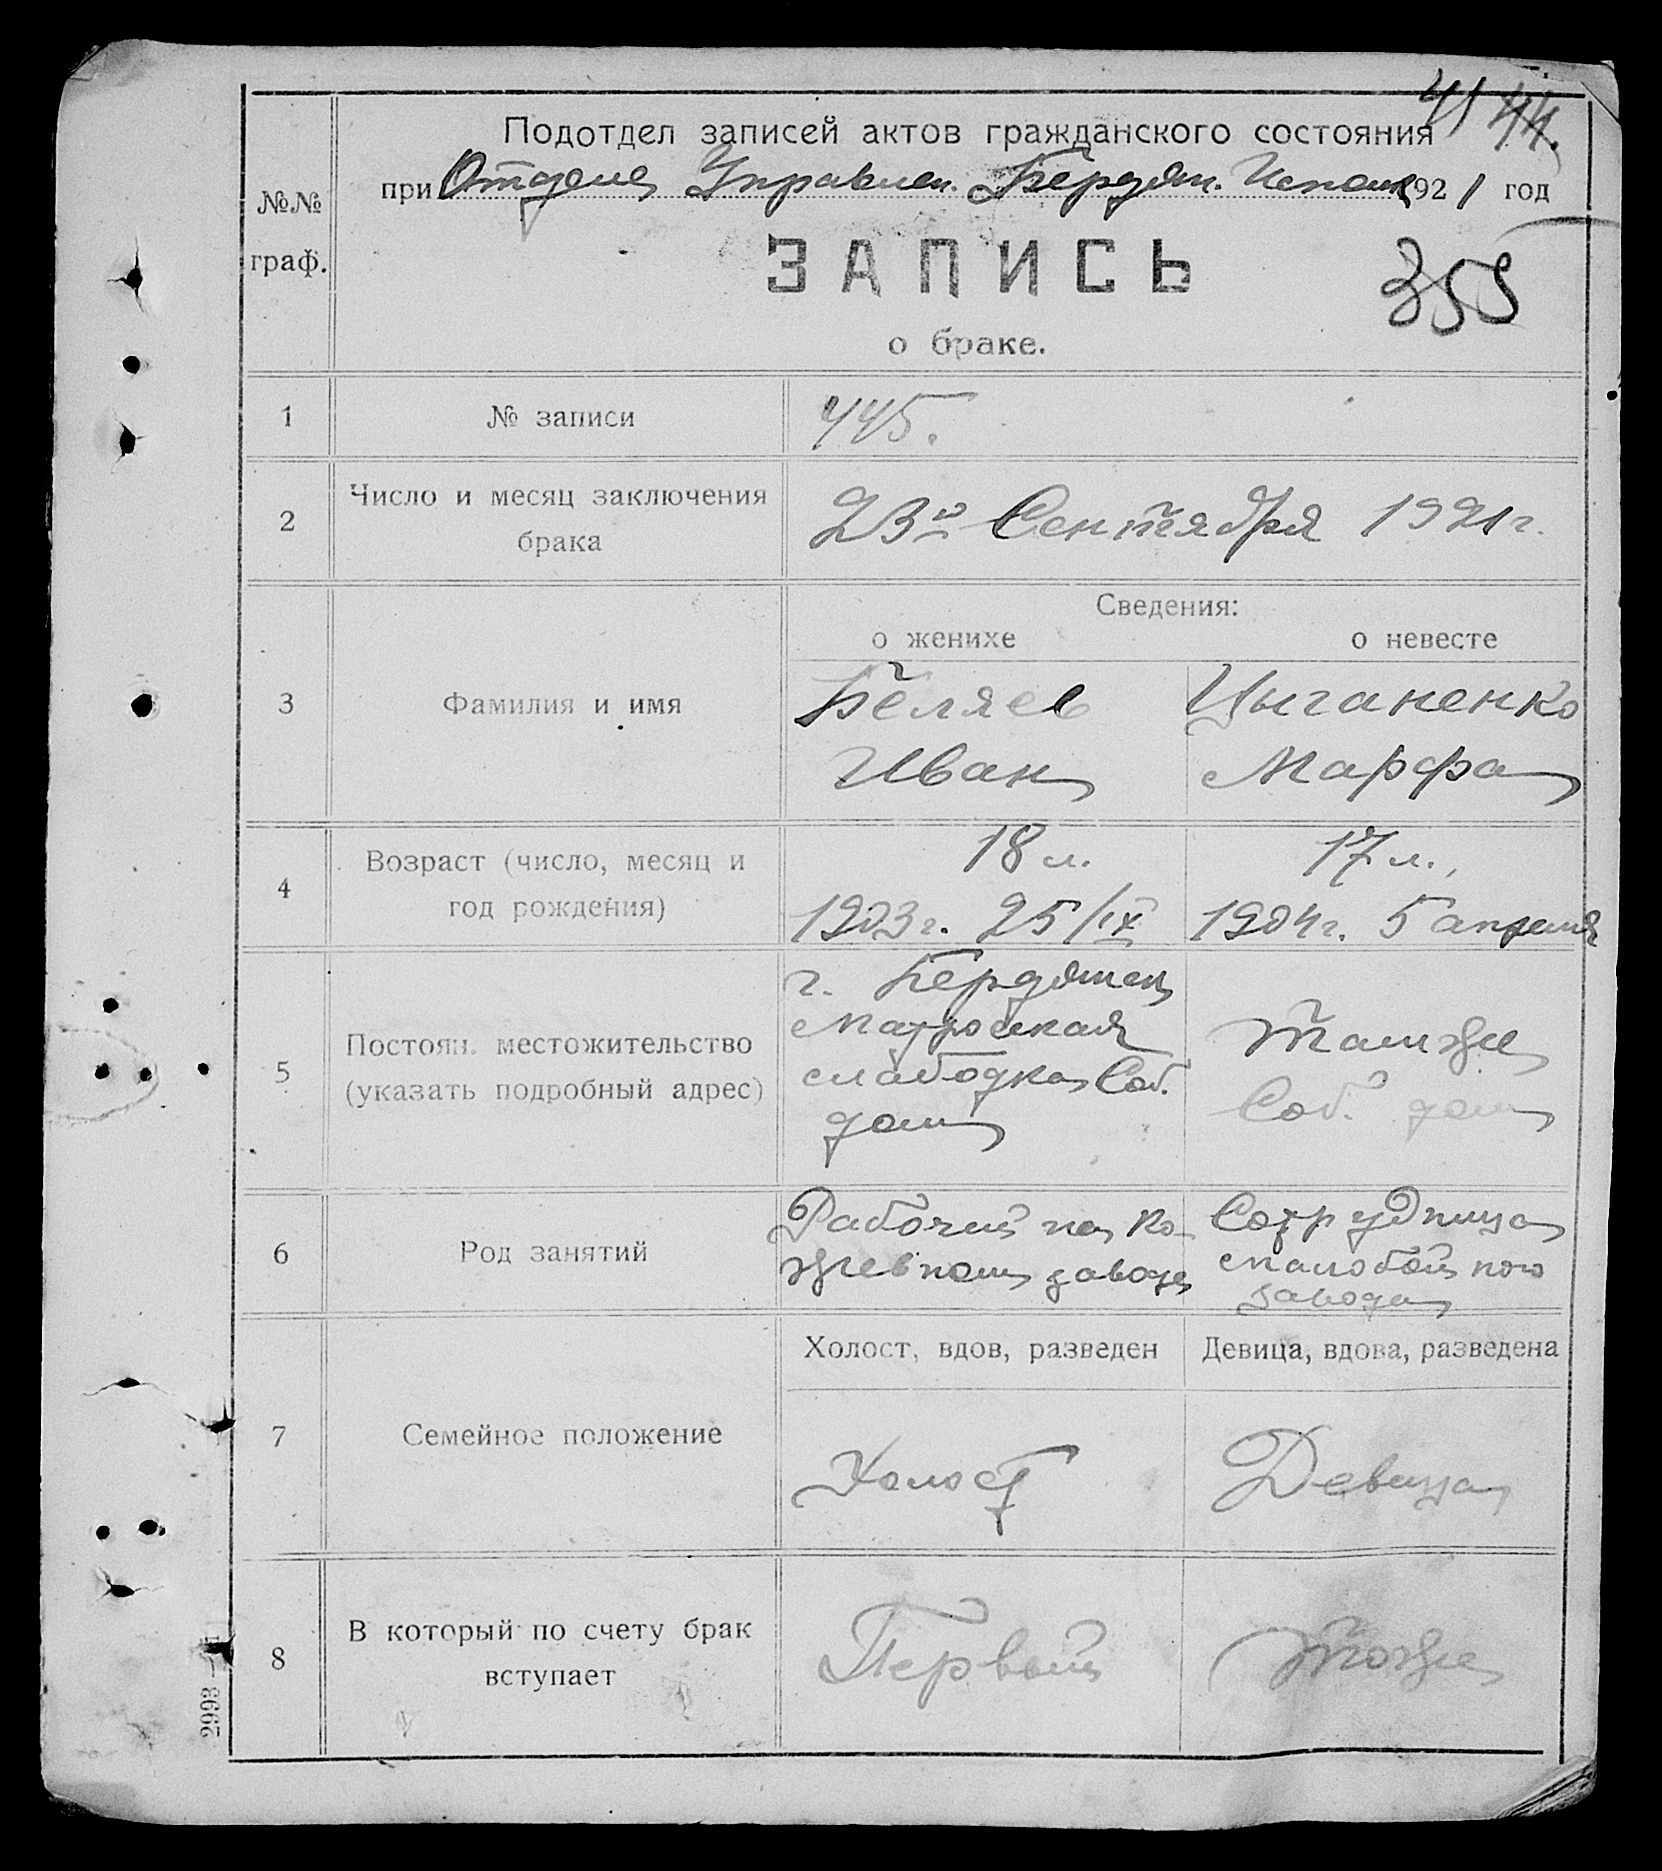 41 44.
Подотдел записей актов гражданского состояния
при Отделе Управлен. Бердян. Исполк 1921 год
№№
граф.
ЗАПИСЬ
355
о браке.
1 № записи 445.
2 Число и месяц заключения
брака
23го Сентября 1921 г.
Сведения:
о женихе о невесте
3 Фамилия и имя
Беляев Цыганенко
Иван Марфа
4 Возраст (число, месяц и
год рождения)
18 л. 17 л.,
1903 г. 25/IX 1904 г. 5 апреля
5 Постоян. местожительство
(указать подробный адрес)
г. Бердянск
Матросская
слабодка Соб.
дом
Там же
Соб. дом
6 Род занятий
Рабочий на ко-
жевном заводе
Сотрудница
маслобойного
завода
7 Семейное положение
Холост, вдов, разведен Девица, вдова, разведена
Холост Девица
8 В который по счету брак
вступает
Первый Тоже
2993